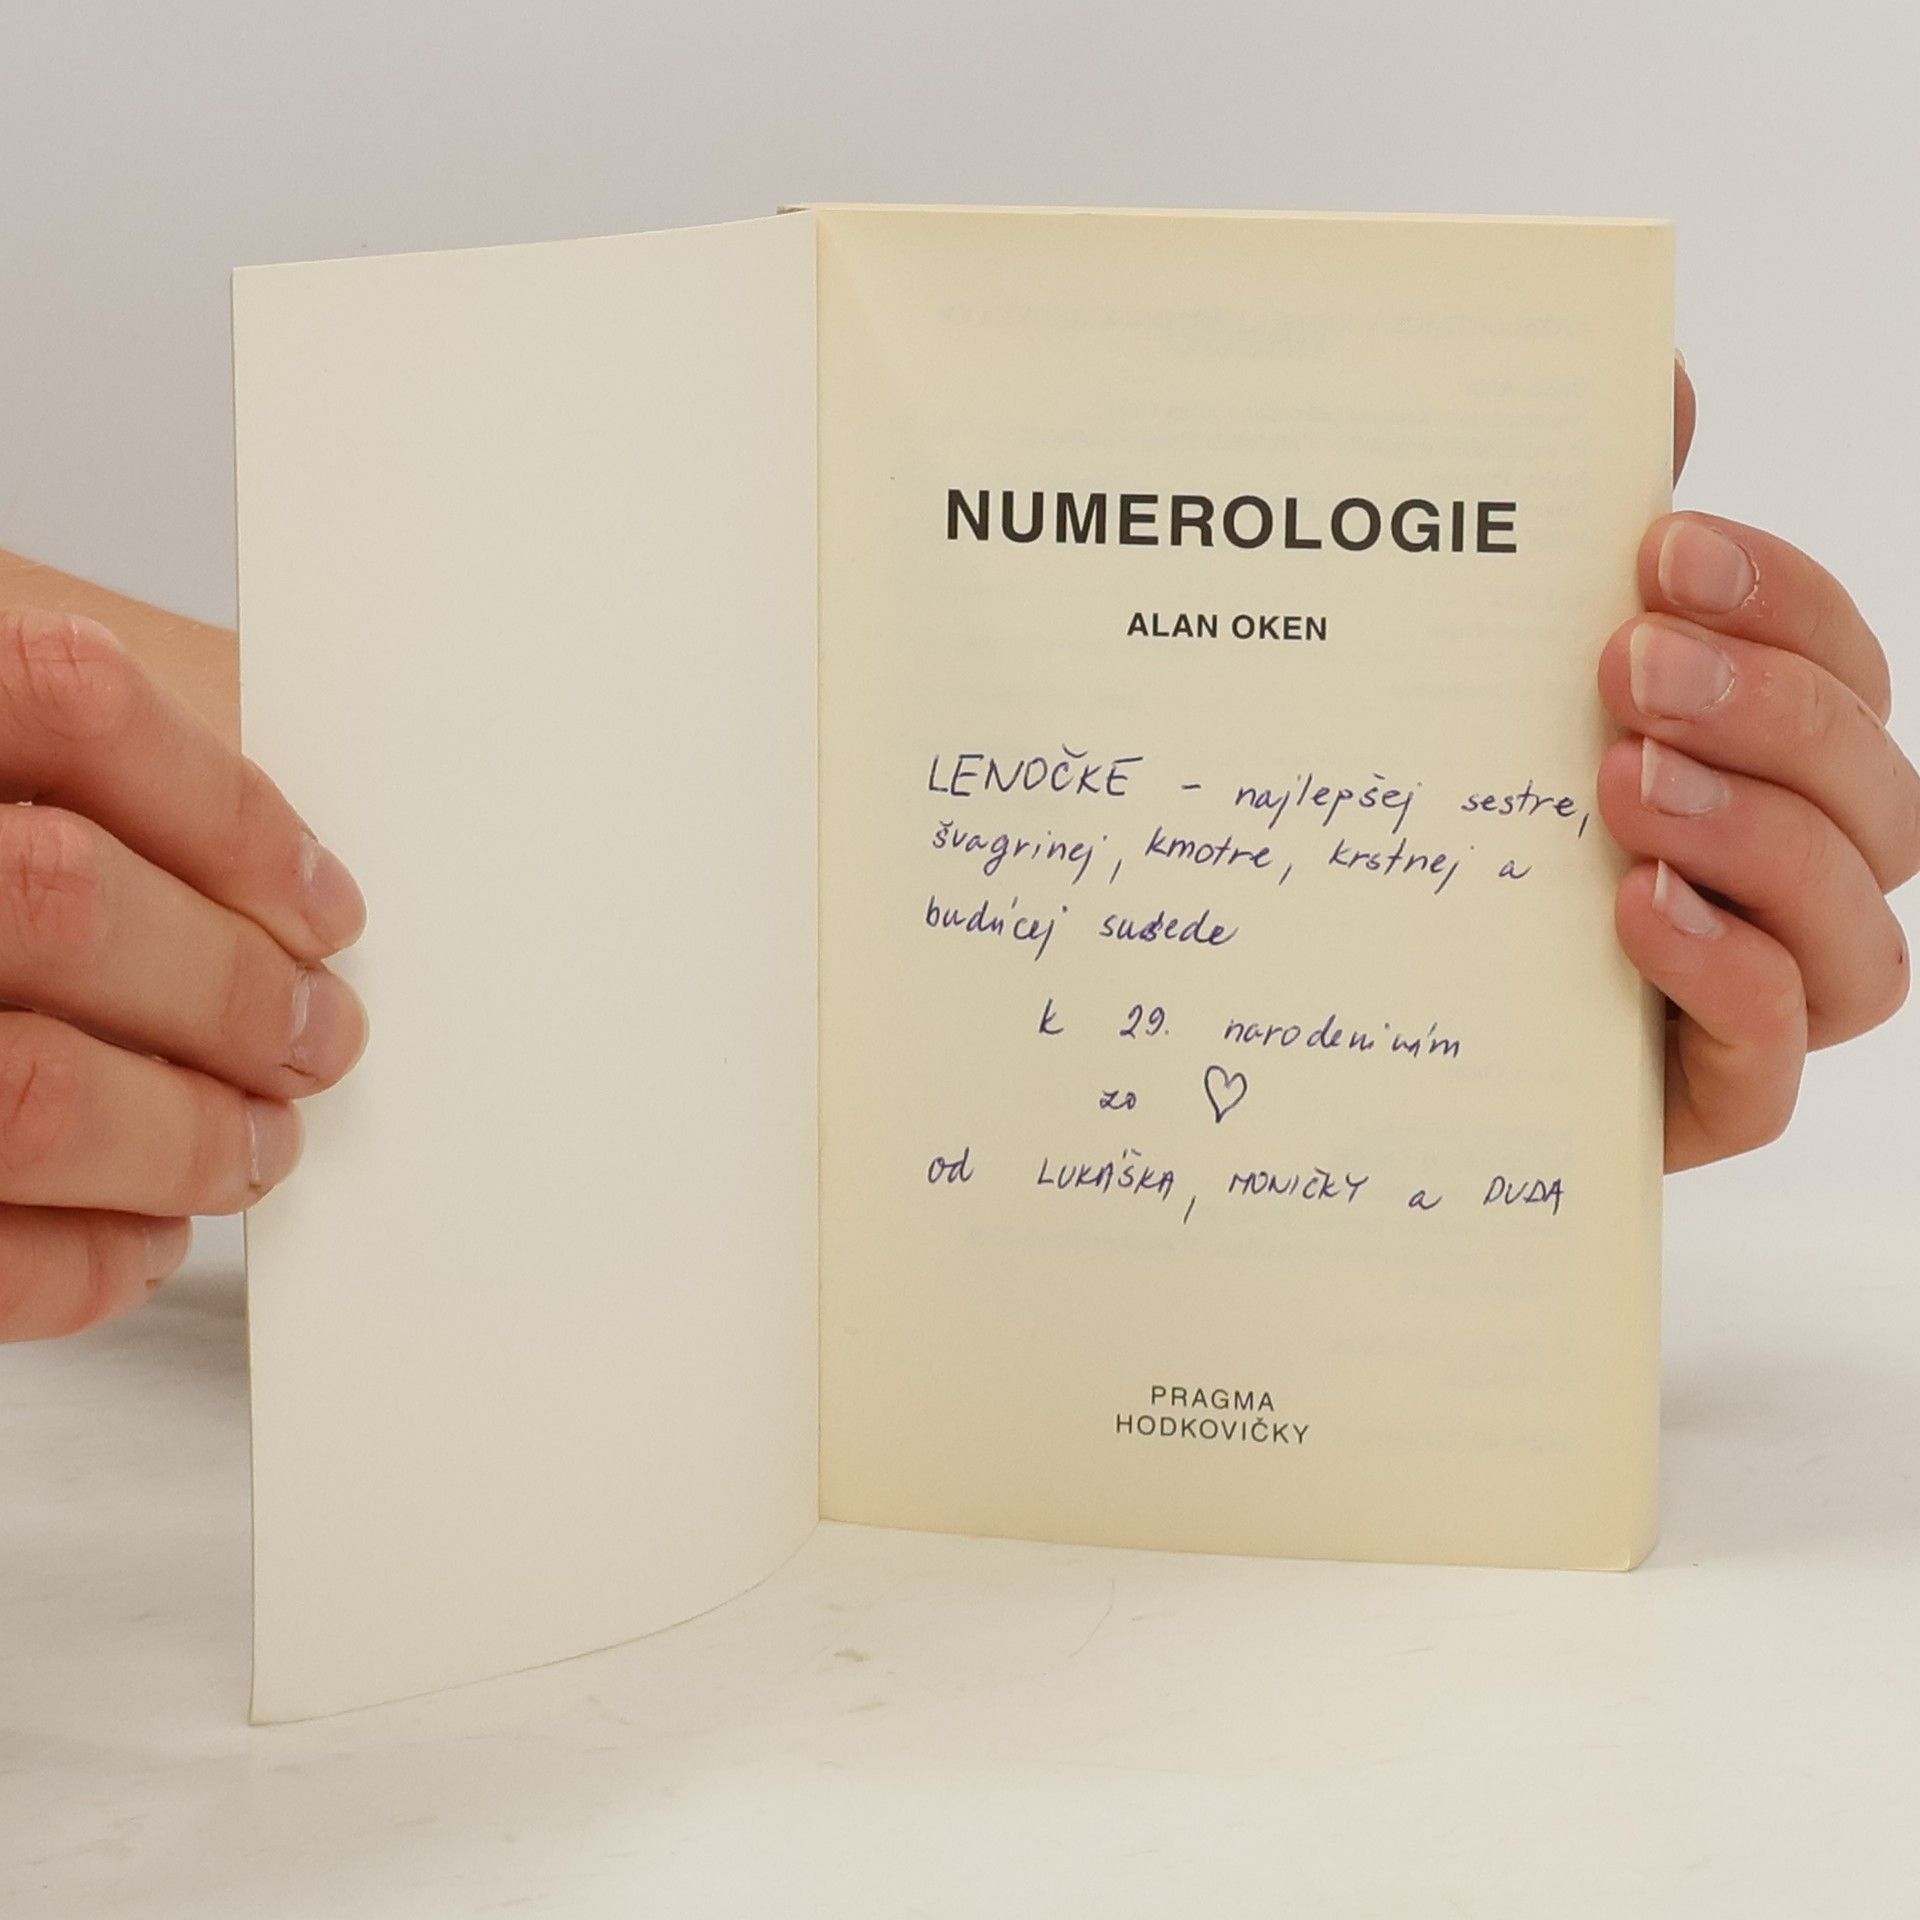 NUMEROLOGIE
ALAN OKEN
LENOČKE - najlepšej sestre,
švagrinej, kmotre, krstnej a
budúcej susede
k 29. narodeninám
zo ♡
od LUKÁŠKA, MONIČKY a DUDA
PRAGMA
HODKOVIČKY